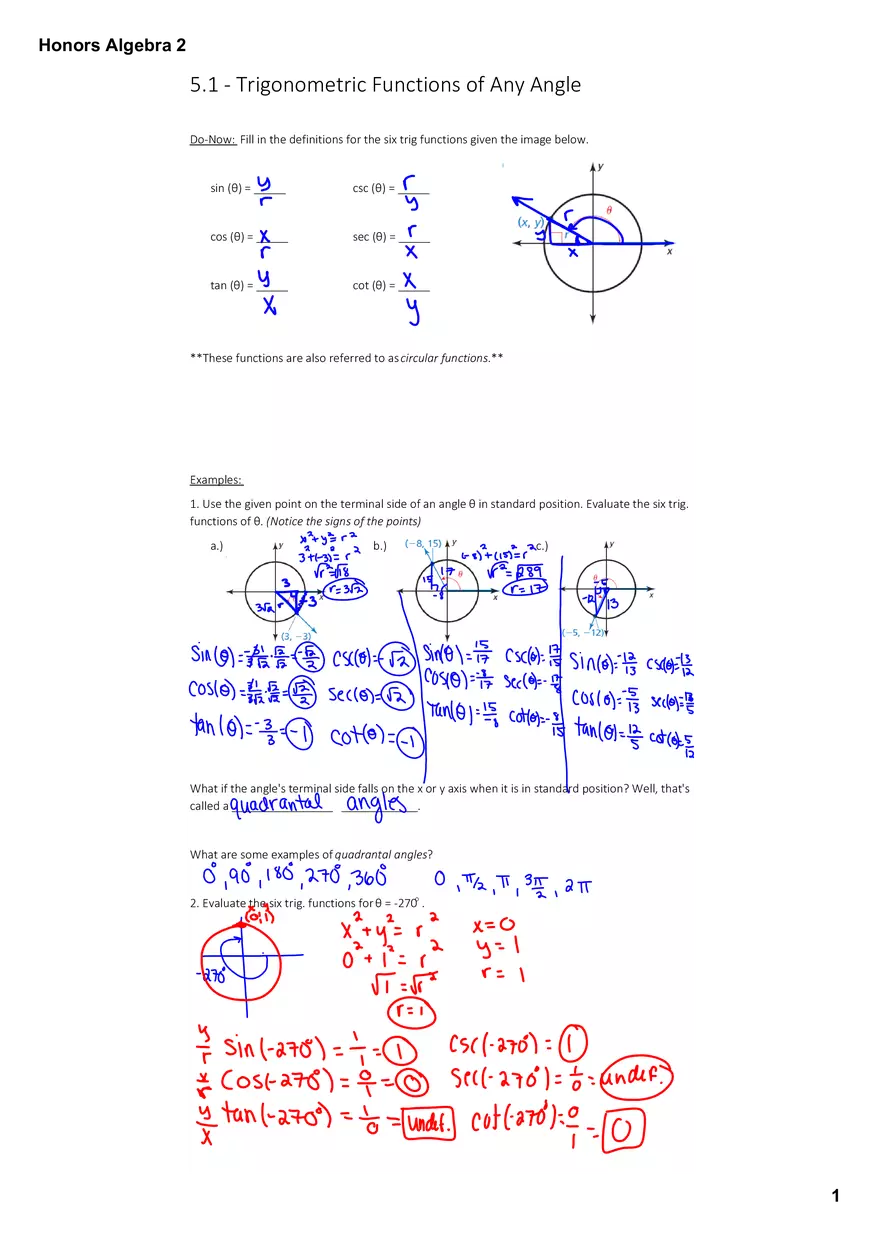 Honors Algebra 2
5.1 - Trigonometric Functions of Any Angle
Do-Now: Fill in the definitions for the six trig functions given the image below.
sin (θ) = y/r csc (θ) = r/y
cos (θ) = x/r sec (θ) = r/x
tan (θ) = y/x cot (θ) = x/y
y
r
θ
(x, y)
y
r
x
x
**These functions are also referred to as circular functions.**
Examples:
1. Use the given point on the terminal side of an angle θ in standard position. Evaluate the six trig.
functions of θ. (Notice the signs of the points)
a.) b.) c.)
x² + y² = r²
3² + (-3)² = r²
√r² = √18
r = 3√2
y
3
x
3√2 r -3
(3, −3)
(−8, 15)
y
(-8)² + (15)² = r²
√r² = √289
r = 17
17
15
θ
-8
x
y
θ
-5
x
-12
13
(−5, −12)
Sin(θ) = -3/3√2 · √2/√2 = -√2/2 csc(θ) = -√2
Cos(θ) = 3/3√2 · √2/√2 = √2/2 sec(θ) = √2
tan(θ) = -3/3 = -1 cot(θ) = -1
Sin(θ) = 15/17 csc(θ) = 17/15
Cos(θ) = -8/17 sec(θ) = -17/8
Tan(θ) = 15/-8 cot(θ) = -8/15
Sin(θ) = -12/13 csc(θ) = -13/12
Cos(θ) = -5/13 sec(θ) = -13/5
tan(θ) = 12/5 cot(θ) = 5/12
What if the angle's terminal side falls on the x or y axis when it is in standard position? Well, that's
called a quadrantal angles.
What are some examples of quadrantal angles?
0°, 90°, 180°, 270°, 360° 0, π/2, π, 3π/2, 2π
2. Evaluate the six trig. functions for θ = -270°.
(0,1)
-270°
x² + y² = r² x = 0
0² + 1² = r² y = 1
√1 = √r² r = 1
r = 1
y/r sin(-270°) = 1/1 = 1 csc(-270°) = 1
x/r cos(-270°) = 0/1 = 0 sec(-270°) = 1/0 = undef.
y/x tan(-270°) = 1/0 = undef. cot(-270°) = 0/1 = 0
1